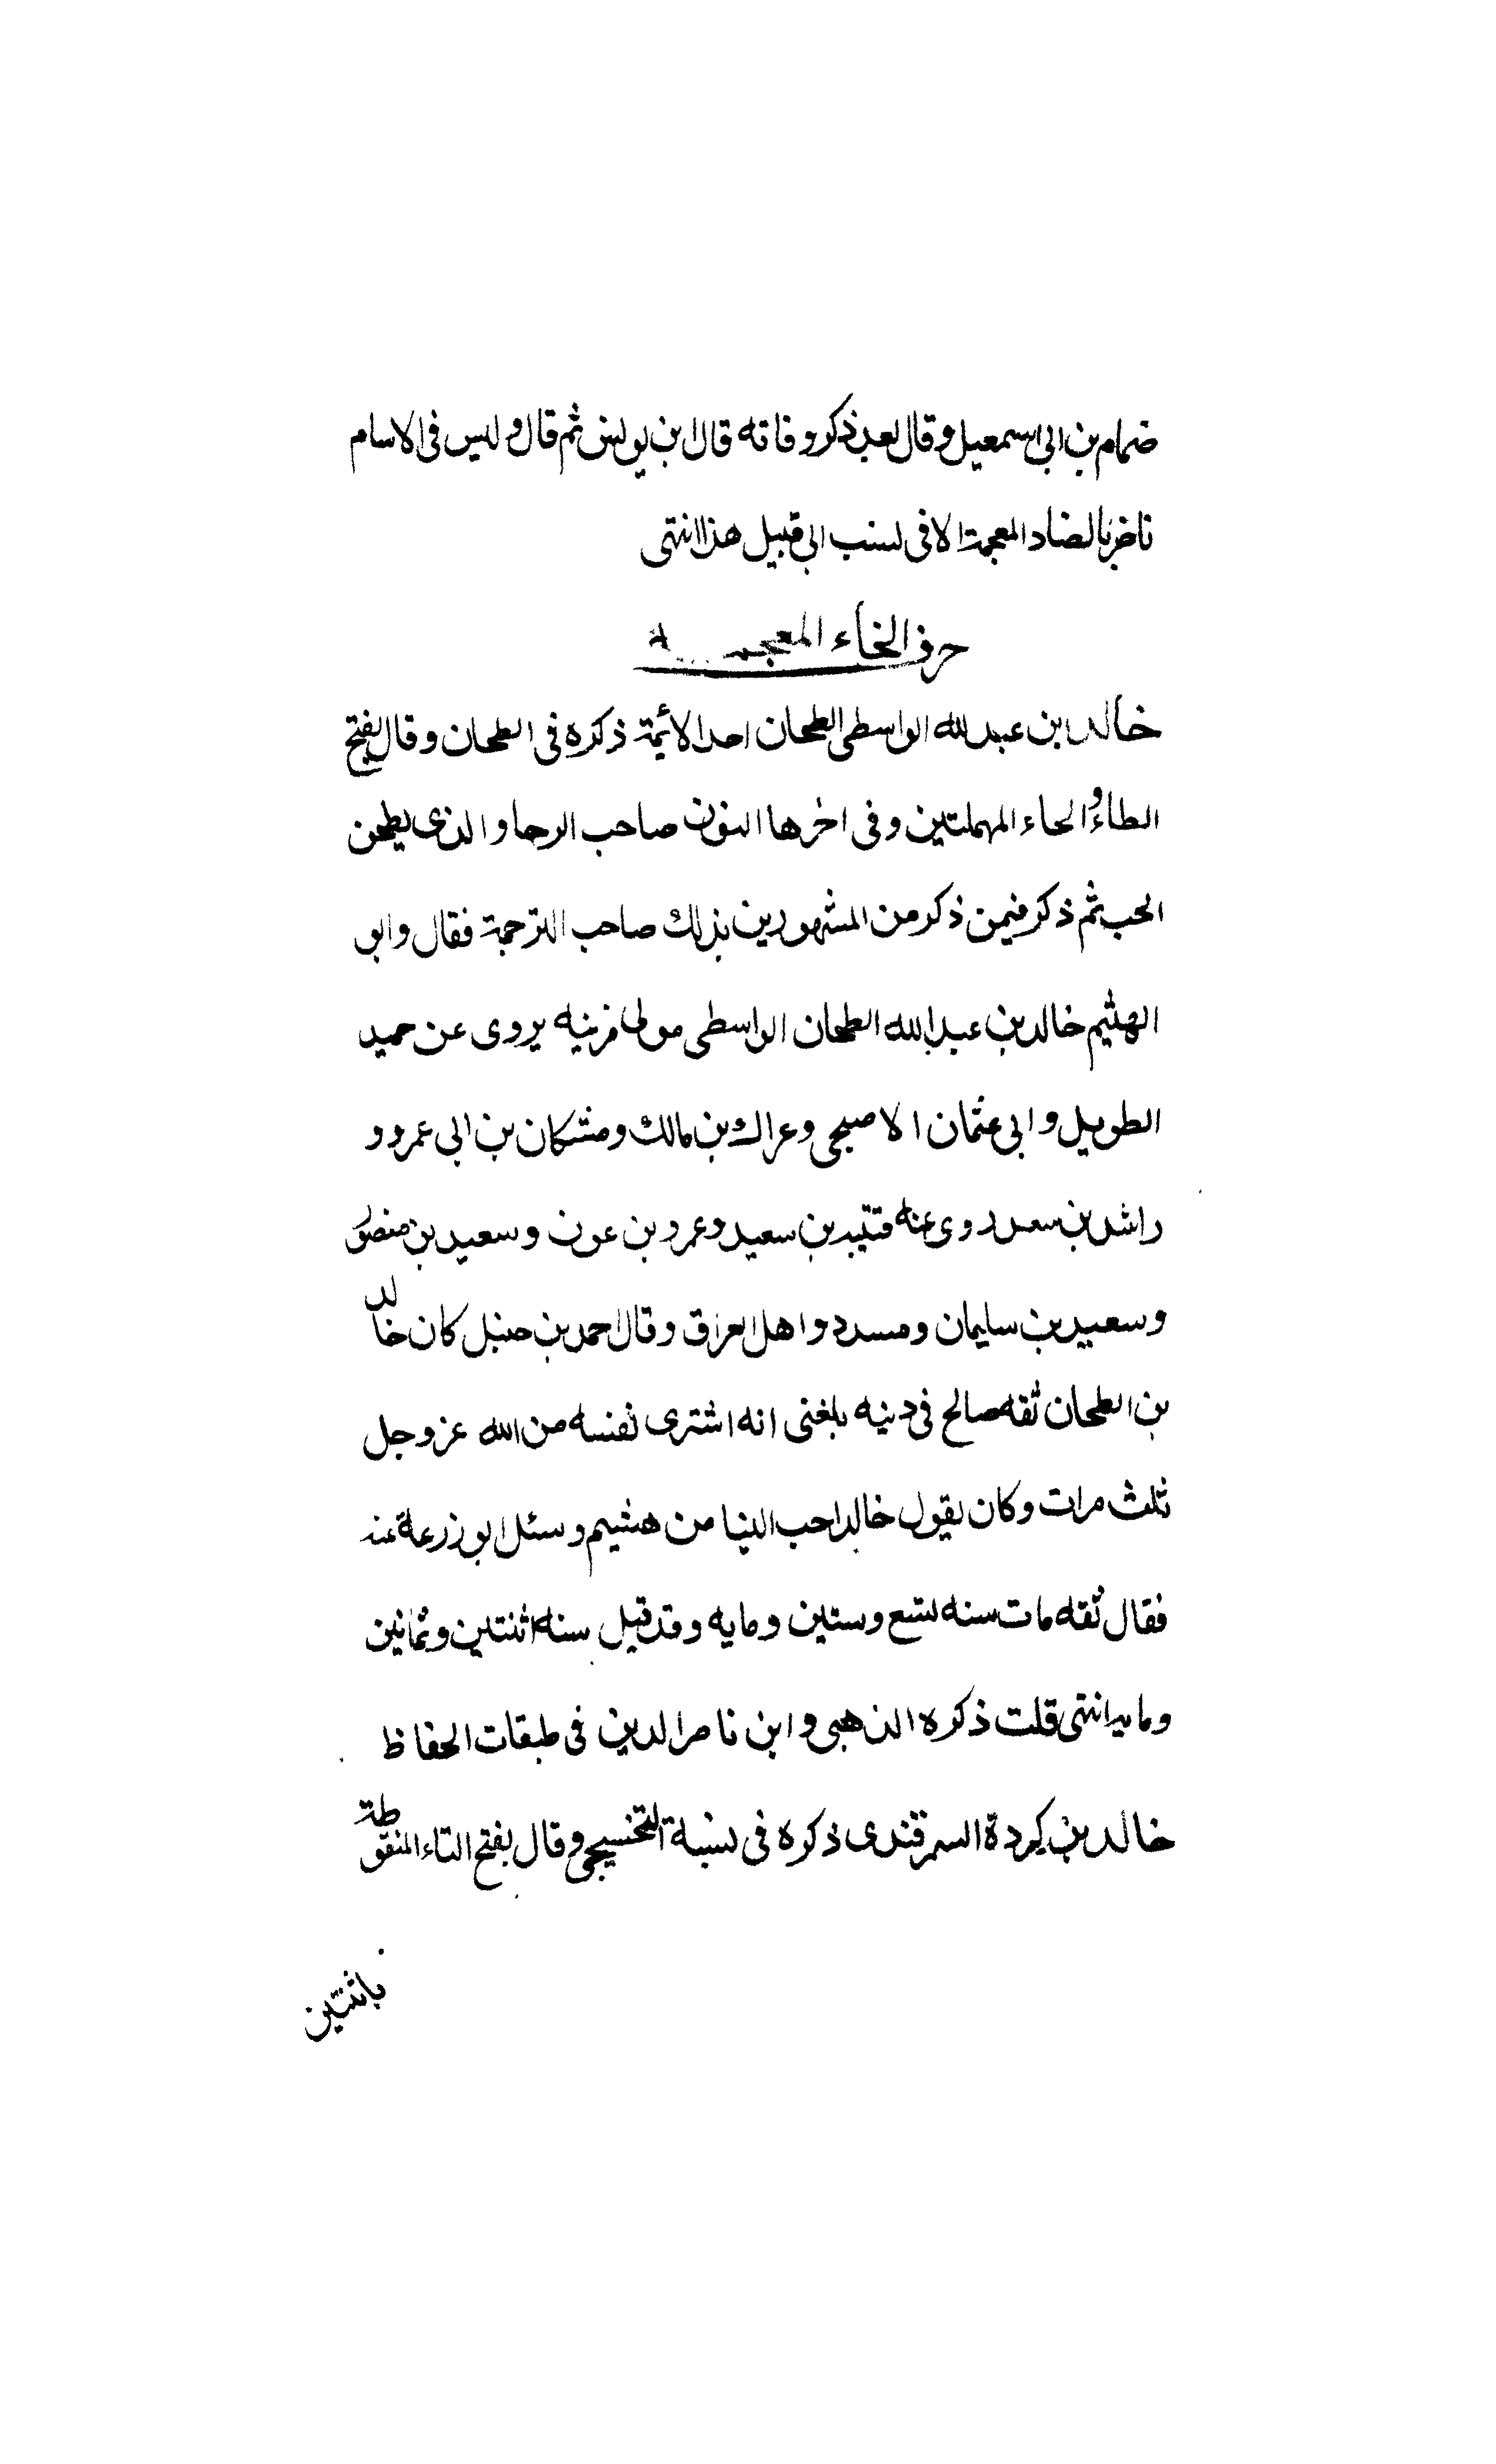 ضمام بن ابى اسمعيل وقال بعد ذكر وفاته قال ابن يونس ثم قال وليس فى الاسام
ناضر بالضاد المعجمة الا فى نسب ابى قبيل هذا انتهى
حرف الخاء المعجمه
خالد بن عبد الله الواسطى الطحان احد الائمة ذكره فى الطحان وقال بفتح
الطاء والحاء المهملتين وفى اخرها النون صاحب الرحا والذى يطحن
الحب ثم ذكر فيمن ذكر من المشهورين بذلك صاحب الترجمة فقال وابو
الهثيم خالد بن عبد الله الطحان الواسطى مولى مزينه يروى عن حميد
الطويل وابى عثمان الاصبحى وعراك بن مالك ومشكان بن ابى عمرو و
راشد بن سعد روى عنه قتيبه بن سعيد وعمرو بن عون وسعيد بن منصور
وسعيد بن سليمان ومسدد واهل العراق وقال احمد بن حنبل كان خالد
بن الطحان ثقه صالح فى دينه بلغنى انه اشترى نفسه من الله عز وجل
ثلث مرات وكان يقول خالد احب الينا من هشيم وسئل ابو زرعة عنه
فقال ثقه مات سنه تسع وستين ومايه وقد قيل سنه اثنتين وثمانين
ومايه انتهى قلت ذكره الذهبى وابن ناصر الدين فى طبقات الحفاظ
خالد بن كردة السمرقندى ذكره فى نسبة التخسيجى وقال بفتح التاء المنقوطة
باثنتين